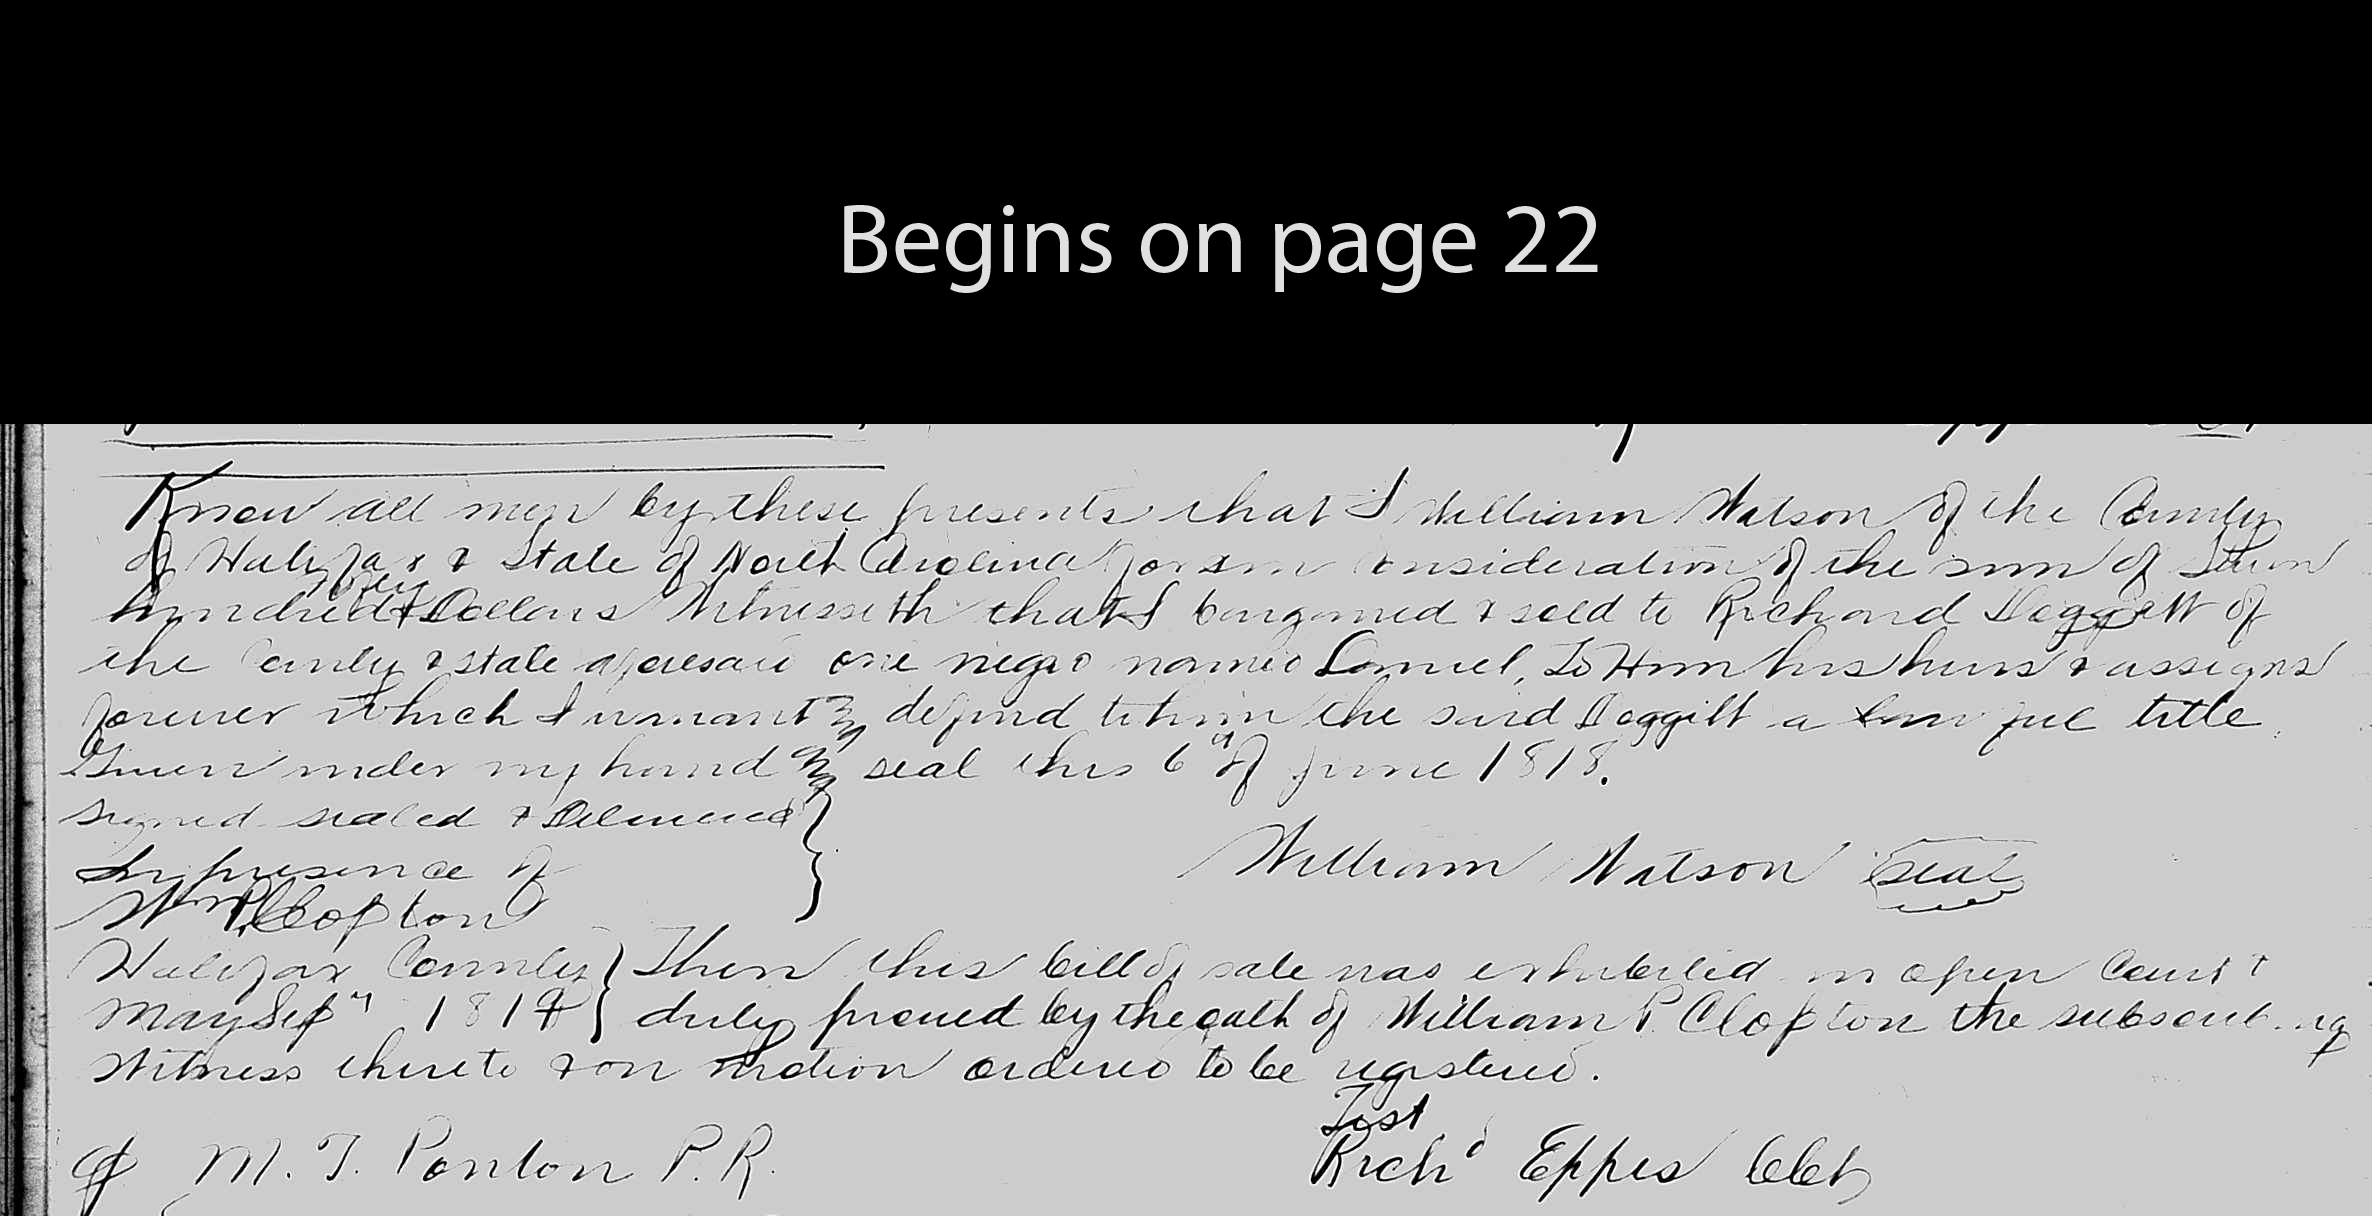 Begins on page 22
Know all men by these presents that I William Watson of the County
of Halifax & State of North Carolina for & in consideration of the sum of
hundred & Dollars Witnesseth that I bargained & sold to Richard Doggett of
the County & state aforesaid one negro named Lemuel, To Him his heirs & assigns
forever which I warrant & defend to him the said Doggitt a law ful title
Given under my hand & seal this 6th of June 1818.
signed sealed & Delivered
In presence of
William Watson seal
Wm P. Clopton
Halifax County } Then this bill of sale was exhibited in open Court &
May Sesn 1819 } duly proved by the oath of William P. Clopton the subscribing
Witness thereto & on motion ordered to be registered.
Test
M. T. Ponton P. R.
Richd Eppes Clk